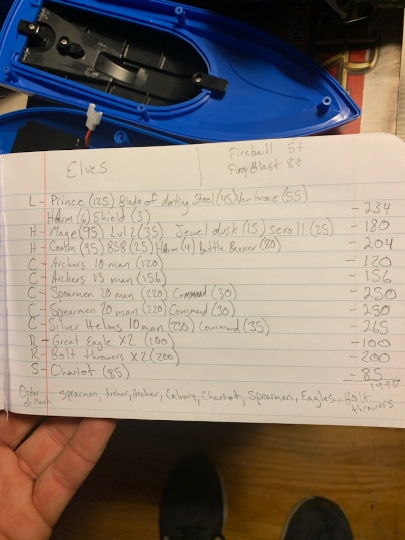 Elves
Fireball 5+
Fiery Blast 8+
L - Prince (125) Blade of darting Steel (45) Vambrace (55)
H Arm (6) Shield (3) - 234
H - Mage (95) Lvl 2 (35) Jewel dust (15) scroll (25) - 180
H - Comm (95) BSB (25) H Arm (4) Battle Banner (80) - 204
C - Archers 10 man (120) - 120
C - Archers 13 man (156) - 156
C - Spearmen 20 man (220) Command (30) - 250
C - Spearmen 20 man (220) Command (30) - 250
C - Silver Helms 10 man (230) Command (35) - 265
R - Great Eagle X2 (100) - 100
R - Bolt throwers X2 (200) - 200
S - Chariot (85) - 85
Order of March Spearmen, Archer, Archer, Calvary, Chariot, Spearmen, Eagles, Bolt throwers